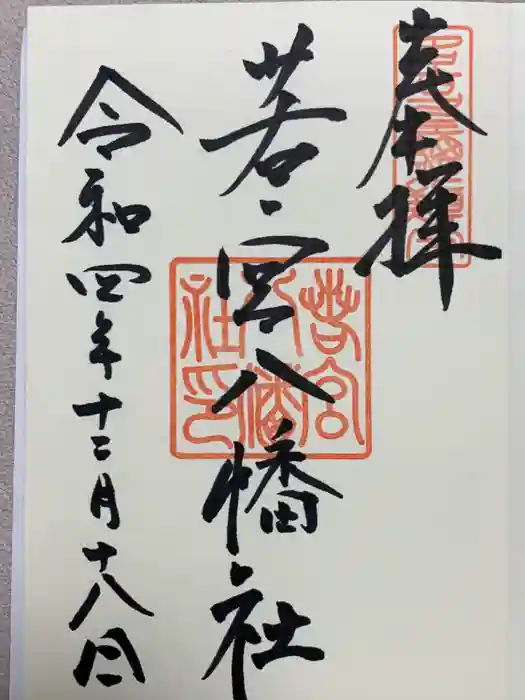 奉拝
若宮八幡社
若宮八幡社印
令和四年十二月十八日